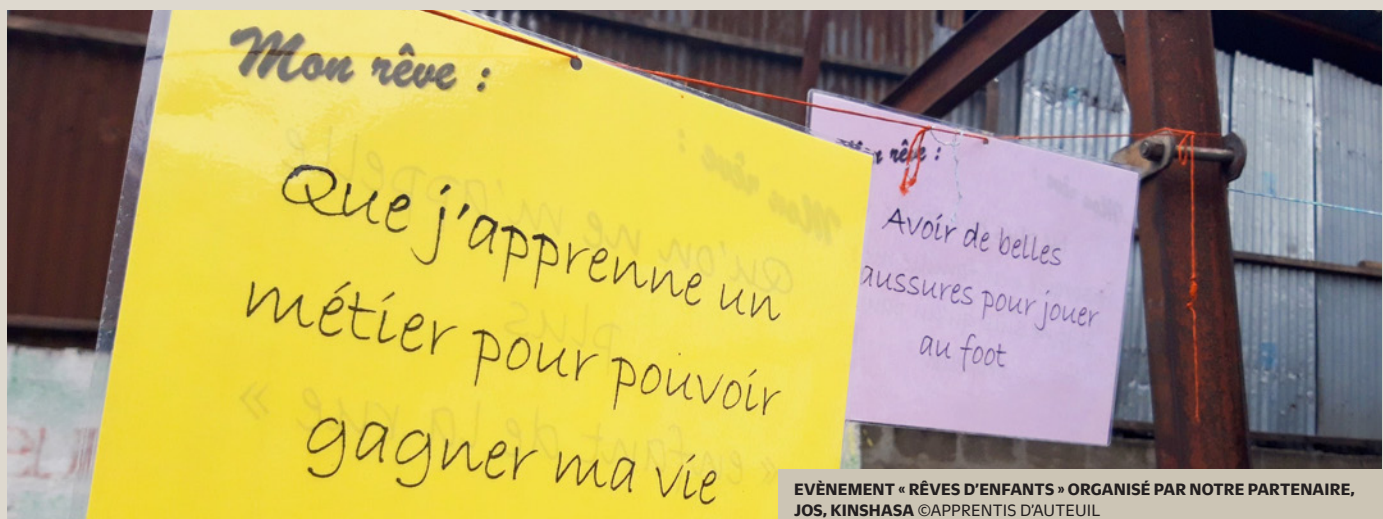 Mon rêve :
Que j'apprenne un
métier pour pouvoir
gagner ma vie
Mon rêve :
Qu'on ne m'appelle
plus
« enfant de la rue »
rêve :
Avoir de belles
aussures pour jouer
au foot
EVÈNEMENT « RÊVES D'ENFANTS » ORGANISÉ PAR NOTRE PARTENAIRE,
JOS, KINSHASA ©APPRENTIS D'AUTEUIL